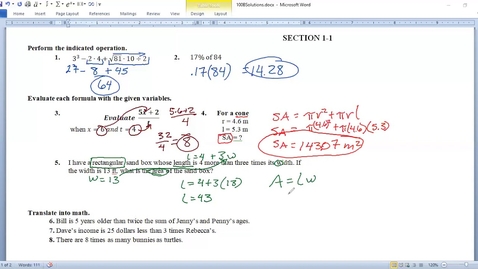 100BSolutions.docx - Microsoft Word
File Home Insert Page Layout References Mailings Review View
SECTION 1-1
Perform the indicated operation.
1. 3³ - 2·4 + √81·10÷2
27 - 8 + 45
64
2. 17% of 84
.17(84) = 14.28
Evaluate each formula with the given variables.
3. Evaluate
when x = and t = 4
5·6+2
4
32
4
= 8
4. For a cone
r = 4.6 m
l = 5.3 m
SA = ?
SA = πr² + πrl
SA = π(4.6)² + π(4.6)(5.3)
SA = 143.07 m²
5. I have a rectangular sand box whose length is 4 more than three times its width. If
the width is 13 ft, what is the area of the sand box?
L = 4 + 3·w
w = 13
L = 4 + 3(13)
L = 43
A = Lw
Translate into math.
6. Bill is 5 years older than twice the sum of Jenny's and Penny's ages.
7. Dave's income is 25 dollars less than 3 times Rebecca's.
8. There are 8 times as many bunnies as turtles.